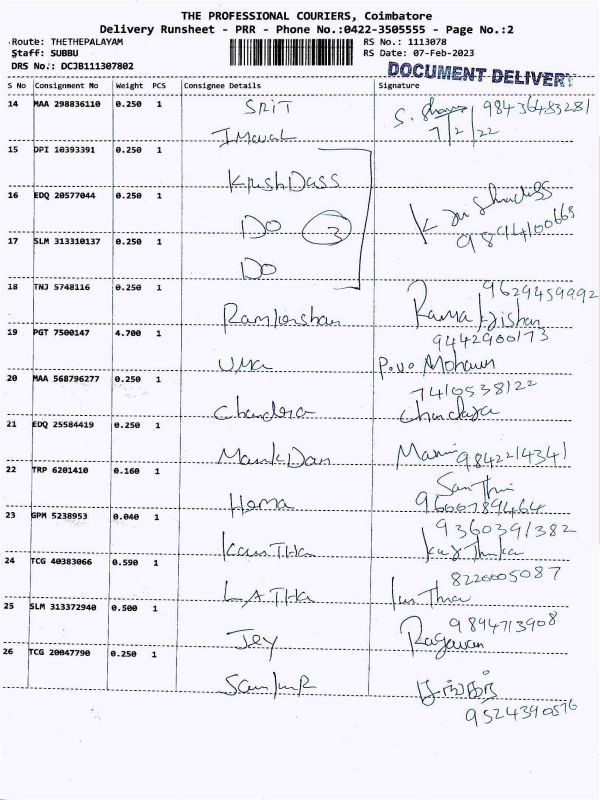 THE PROFESSIONAL COURIERS, Coimbatore
Delivery Runsheet - PRR - Phone No.:0422-3505555 - Page No.:2
Route: THETHEPALAYAM RS No.: 1113078
Staff: SUBBU RS Date: 07-Feb-2023
DRS No.: DCJB111307802 DOCUMENT DELIVERY
S No Consignment No Weight PCS Consignee Details Signature
14 MAA 298836110 0.250 1 SRIT
7/2/22
15 DPI 10393391 0.250 1
Krish Dass
16 EDQ 20577044 0.250 1
DO 3
9894100665
17 SLM 313310137 0.250 1
DO
18 TNJ 5748116 0.250 1 9629459992
19 PGT 7500147 4.700 1 9442900173
UMA Mohan
20 MAA 568796277 0.250 1 7410538122
Chandra
21 EDQ 25584419 0.250 1
Mani 9842214341
22 TRP 6201410 0.160 1
Hema 9600789464
23 GPM 5238953 0.040 1 9360391382
24 TCG 40383066 0.590 1 8220005087
LATHA
25 SLM 313372940 0.500 1 9894713908
Jey Ragavan
26 TCG 20047790 0.250 1
9524390576